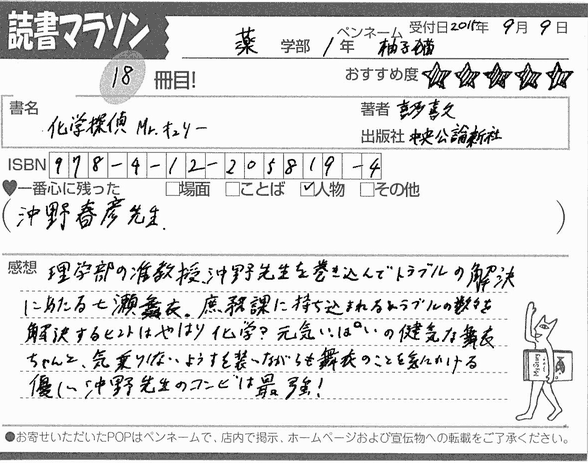 読書マラソン
薬 学部 1年 ペンネーム 柚子猫 受付日2015年 9月 9日
18 冊目! おすすめ度 ★★★★★
書名 化学探偵 Mr.キュリー
著者 喜多喜久
出版社 中央公論新社
ISBN 978-4-12-205819-4
♥一番心に残った □場面 □ことば ☑人物 □その他
(沖野春彦先生.)
感想 理学部の准教授、沖野先生を巻き込んでトラブルの解決
にあたる七瀬舞衣。庶務課に持ち込まれるトラブルの数々を
解決するヒントはやはり化学?元気いっぱいの健気な舞衣
ちゃんと、気乗りしないようすを装いながらも舞衣のことを気にかける
優しい沖野先生のコンビは最強!
●お寄せいただいたPOPはペンネームで、店内で掲示、ホームページおよび宣伝物への転載をご了承ください。